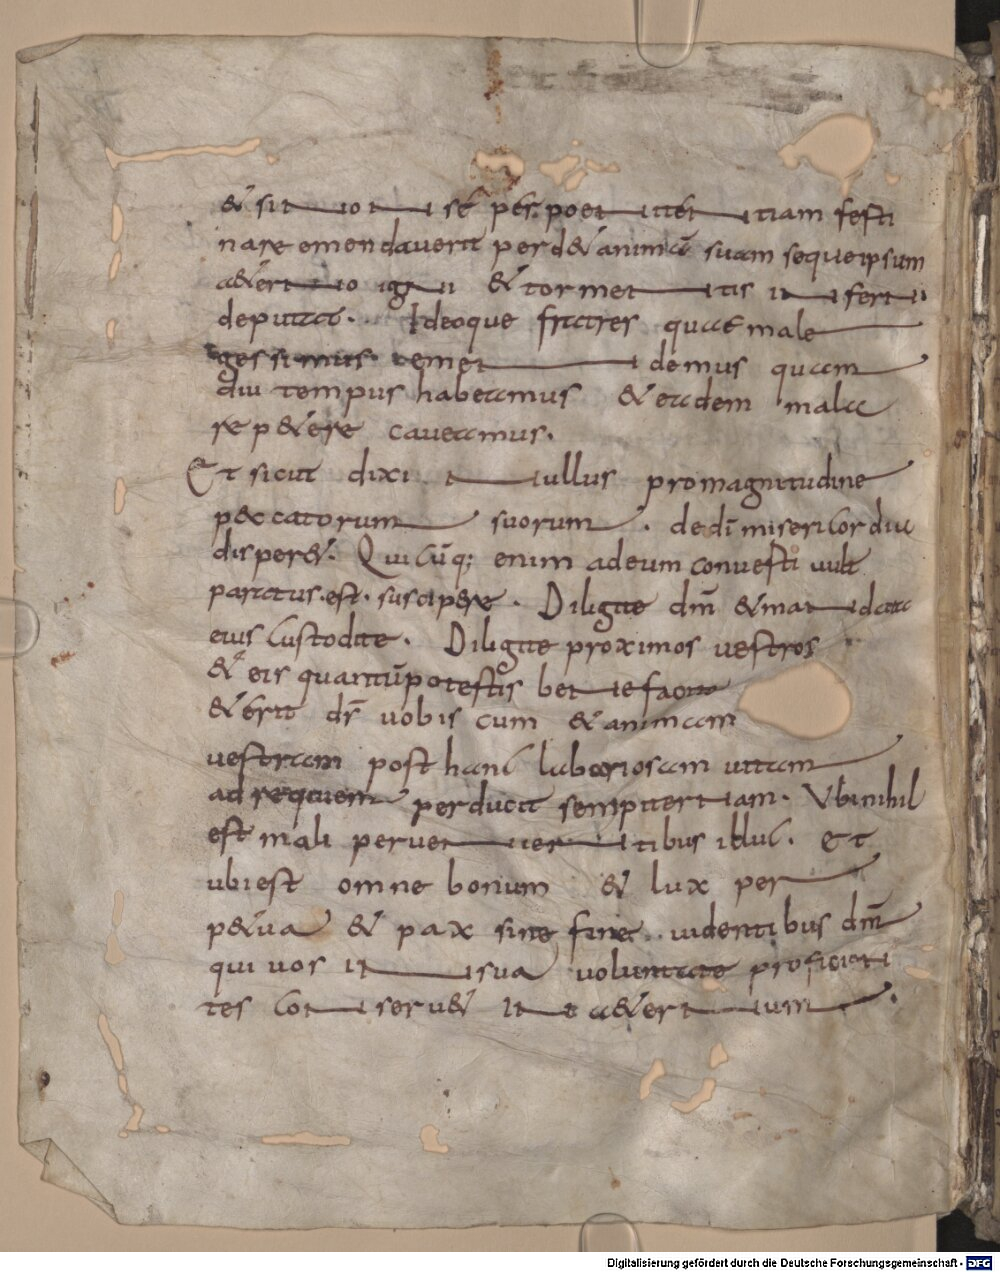 & si non se per penitentiam festi
nare emendaverit perd& animā suam seque ipsum
aeterno igni & tormentis inferni
deputat. Ideoque fratres quae male
gessimus emendemus quam
diu tempus habeamus & eadem mala
repetere caveamus.
Et sicut dixi nullus pro magnitudine
peccatorum suorum. de dī misericordia
disper&. Quicūq; enim ad eum converti vult
paratus. est. suscipere. Diligite dm̄ & mandata
eius custodite. Diligite proximos vestros
& eis quantū potestis benefacite
& erit ds̄ vobiscum & animam
vestram post hanc laboriosam vitam
ad requiem perducit sempiternam. Ubi nihil
est mali pervenientibus illuc. Et
ubi est omne bonum & lux per
p&ua & pax sine fine. videntibus dm̄
qui vos in sua voluntate proficien
tes conserv& in aeternum.
Digitalisierung gefördert durch die Deutsche Forschungsgemeinschaft - DFG